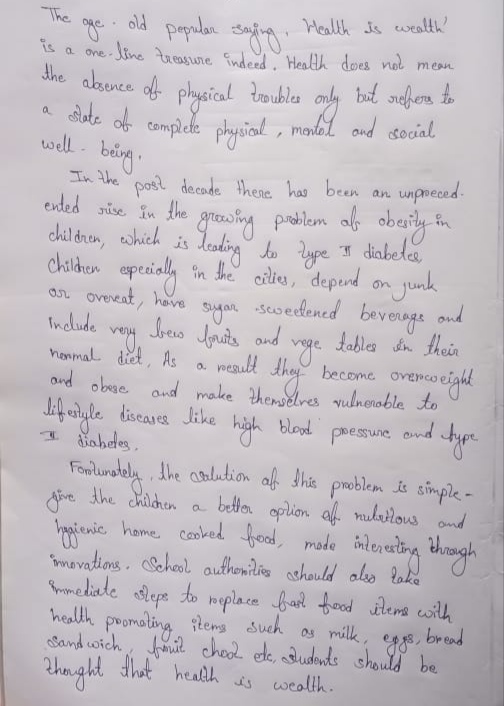 The age - old popular saying, 'Health is wealth'
is a one-line treasure indeed. Health does not mean
the absence of physical troubles only but refers to
a state of complete physical, mental and social
well - being.
In the past decade there has been an unpreced-
ented rise in the growing problem of obesity in
children, which is leading to type II diabetes,
Children especially in the cities, depend on junk
or overeat, have sugar-sweetened beverags and
include very few fruits and vege tables in their
normal diet. As a result they become overweight
and obese and make themselves vulnerable to
lifestyle diseases like high blood pressure and type
II diabetes.
Fortunately, the solution of this problem is simple-
give the children a better option of nutritious and
hygienic home cooked food, made interesting through
innovations. School authorities should also take
immediate steps to replace fast food items with
health promoting items such as milk, eggs, bread
sandwich, fruit chaat etc, students should be
thought that health is wealth.